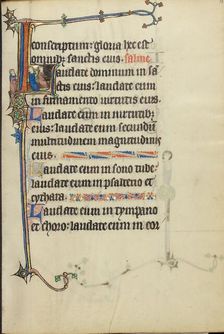 conscriptum: gloria hec est
omnibus sanctis eius. psalmus
Laudate dominum in sanc
tis eius: laudate eum
in firmamento virtutis eius
Laudate eum in virtutibus
eius: laudate eum secundum
multitudinem magnitudinis
eius
Laudate eum in sono tube:
laudate eum in psalterio et
cythara.
Laudate eum in tympano
et choro: laudate eum in cor